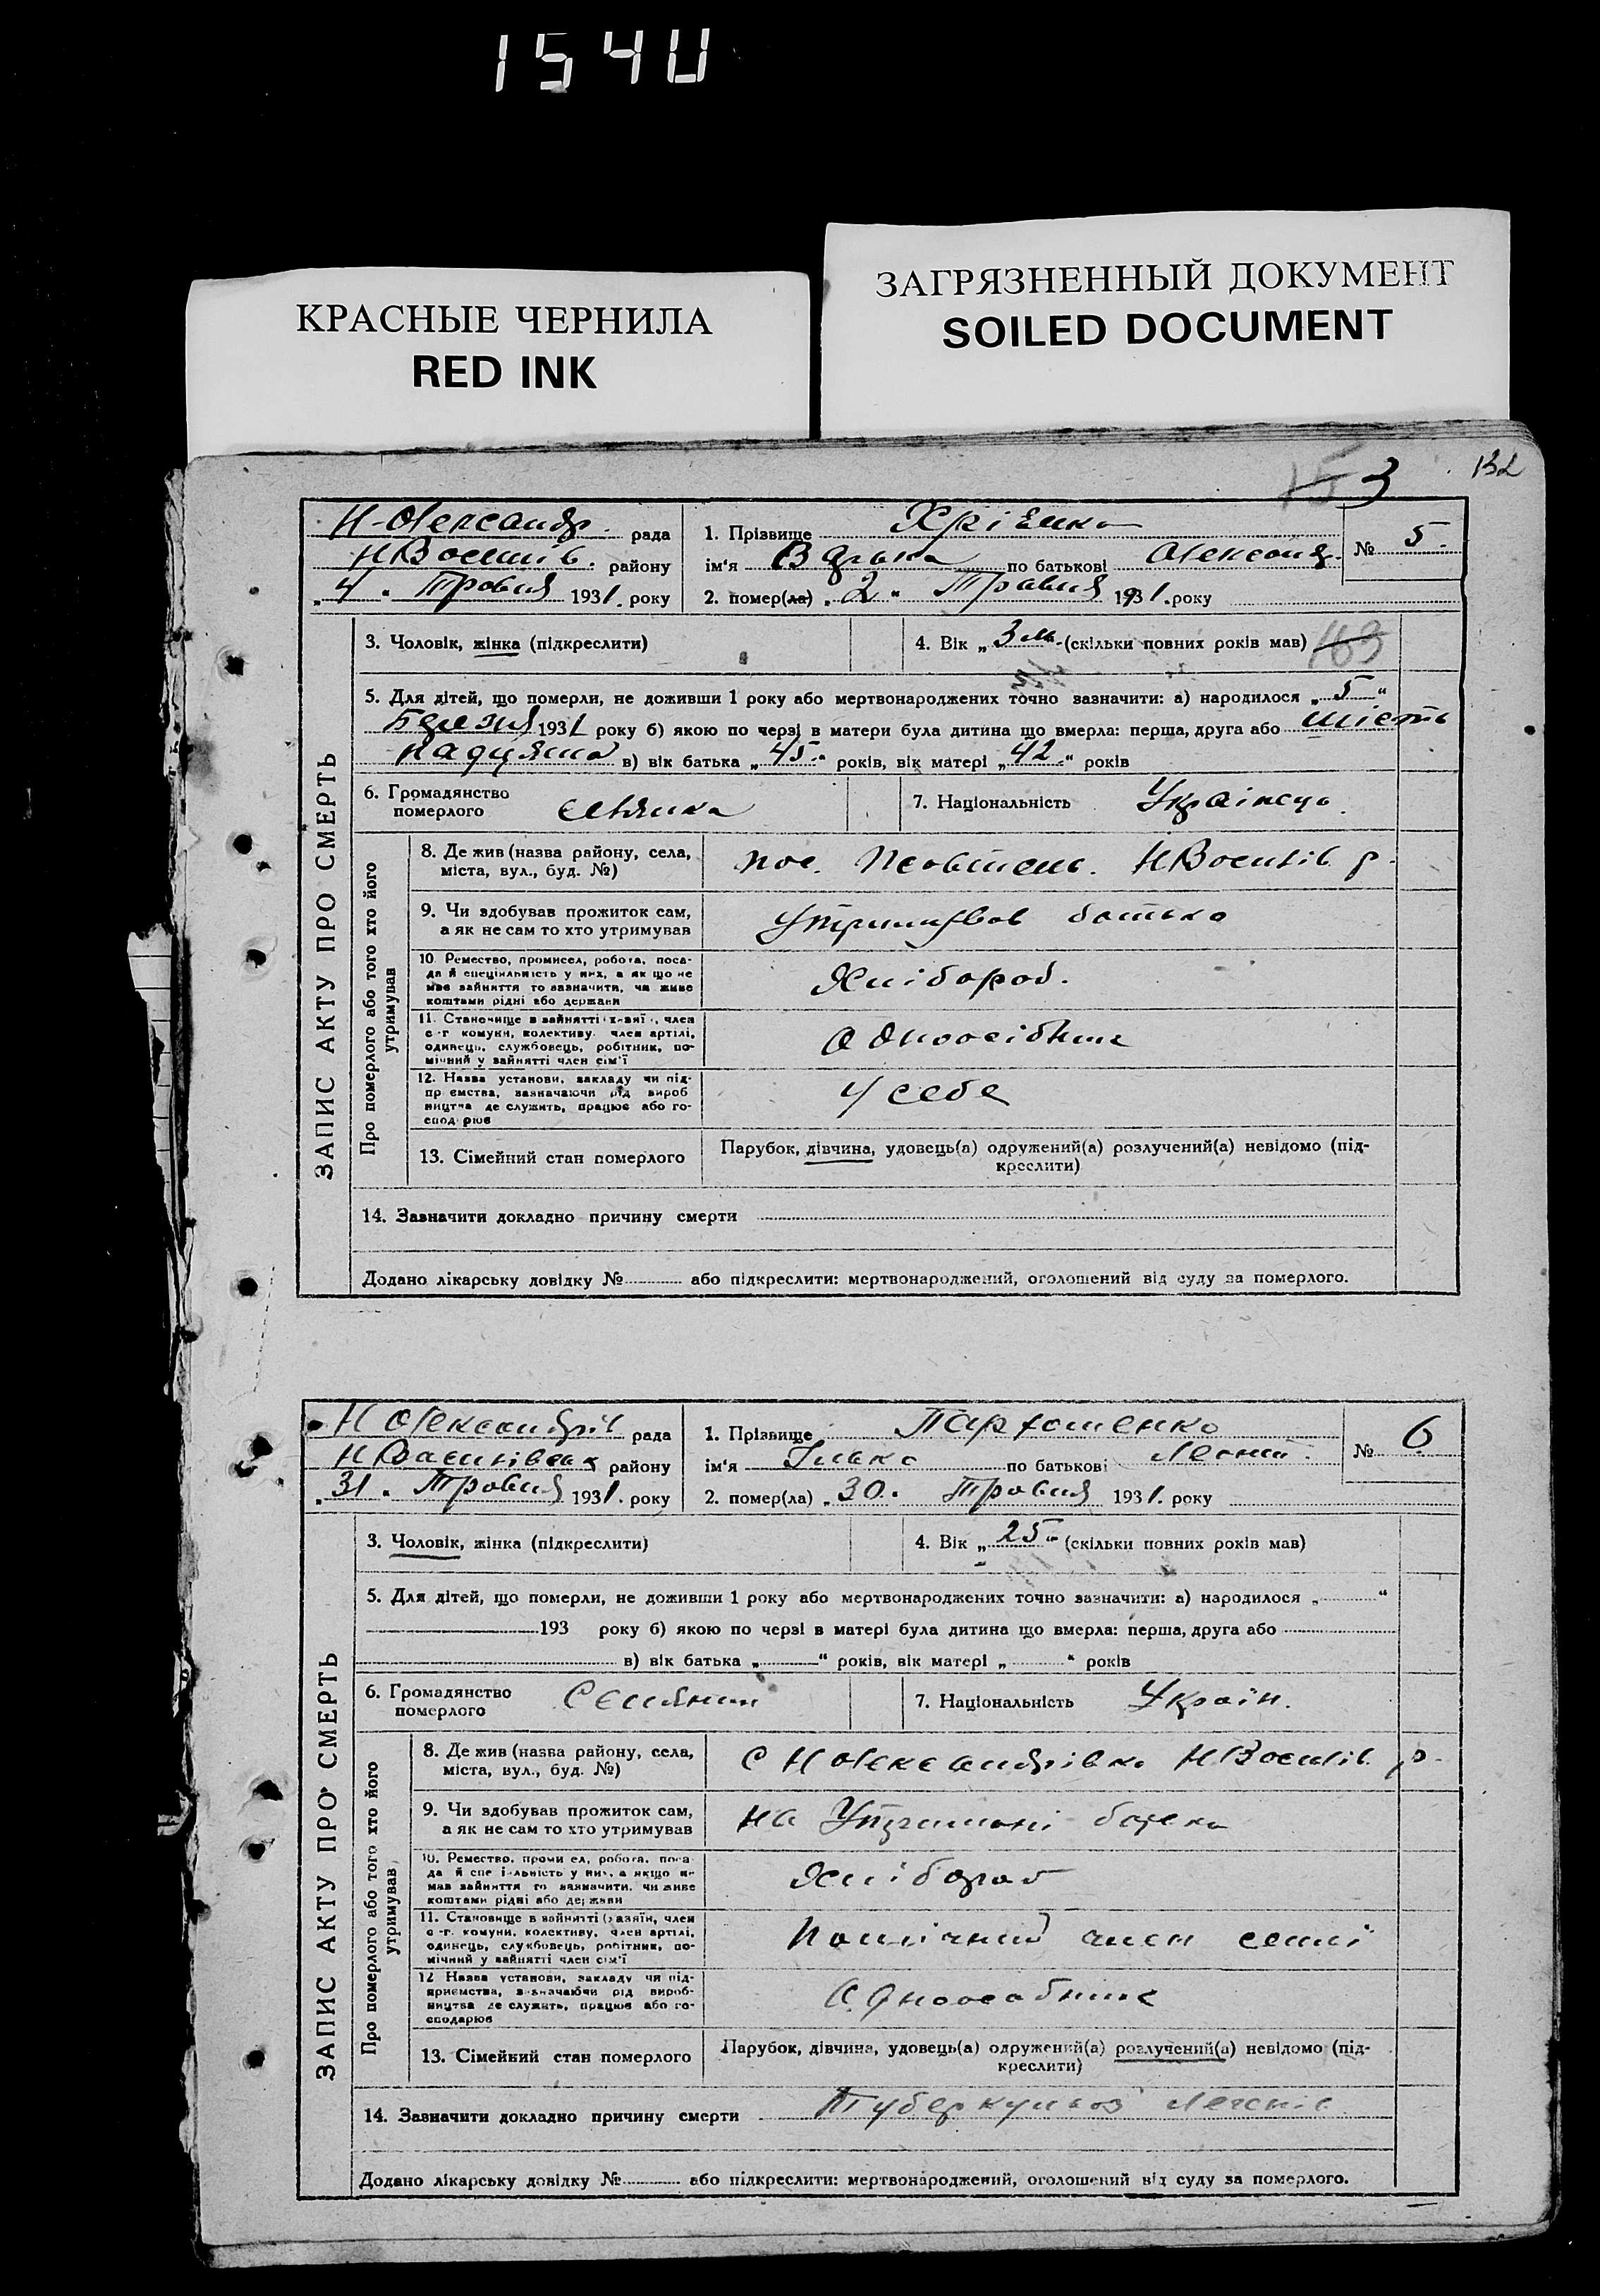 1540
ЗАГРЯЗНЕННЫЙ ДОКУМЕНТ
SOILED DOCUMENT
КРАСНЫЕ ЧЕРНИЛА
RED INK
3 132
Н-Олександр. рада 1. Прізвище № 5.
району ім'я по батькові
„4" Травня 1931. року 2. помер(ла) „2" Травня 1931. року
3. Чоловік, жінка (підкреслити) 4. Вік „3 м." (скільки повних років мав)
5. Для дітей, що померли, не доживши 1 року або мертвонароджених точно зазначити: а) народилося „5"
Березня 1931 року б) якою по черзі в матери була дитина що вмерла: перша, друга або
в) вік батька „45" років, вік матері „42" років
6. Громадянство померлого 7. Національність Українець.
8. Де жив (назва району, села, міста, вул., буд. №)
9. Чи здобував прожиток сам, а як не сам то хто утримував Утримував батько
10. Ремество, промисел, робота, посада й спеціяльність у них, а як що не має зайняття то зазначити, чи живе коштами рідні або держави Хлібороб.
11. Становище в зайнятті (хазяїн, член с.-г. комуни, колективу, член артілі, одинець, службовець, робітник, помічний у зайнятті член сім'ї Одноосібник
12. Назва установи, закладу чи підприємства, зазначаючи рід виробництва де служить, працює або господарює У себе
13. Сімейний стан померлого Парубок, дівчина, удовець(а) одружений(а) розлучений(а) невідомо (підкреслити)
14. Зазначити докладно причину смерти
Додано лікарську довідку № або підкреслити: мертвонароджений, оголошений від суду за померлого.
ЗАПИС АКТУ ПРО СМЕРТЬ
Про померлого або того хто його утримував
Н Олександрів рада 1. Прізвище Пархоменко № 6
району ім'я Ілько по батькові
„31" Травня 1931. року 2. помер(ла) „30" Травня 1931. року
3. Чоловік, жінка (підкреслити) 4. Вік „25" (скільки повних років мав)
5. Для дітей, що померли, не доживши 1 року або мертвонароджених точно зазначити: а) народилося „ "
193 року б) якою по черзі в матери була дитина що вмерла: перша, друга або
в) вік батька „ " років, вік матері „ " років
6. Громадянство померлого Селянин 7. Національність Україн.
8. Де жив (назва району, села, міста, вул., буд. №) С Н Олександрівка
9. Чи здобував прожиток сам, а як не сам то хто утримував на Утримані батька
10. Ремество, промисел, робота, посада й спеціяльність у них, а якщо не мав зайняття то зазначити, чи живе коштами рідні або держави Хлібороб
11. Становище в зайнятті (хазяїн, член с.-г. комуни, колективу, член артілі, одинець, службовець, робітник, помічний у зайнятті член сім'ї Помічний член семї
12 Назва установи, закладу чи підприємства, зазначаючи рід виробництва де служить, працює або господарює Одноосабник
13. Сімейний стан померлого Парубок, дівчина, удовець(а) одружений(а) розлучений(а) невідомо (підкреслити)
14. Зазначити докладно причину смерти Туберкульоз Легенів
Додано лікарську довідку № або підкреслити: мертвонароджений, оголошений від суду за померлого.
ЗАПИС АКТУ ПРО СМЕРТЬ
Про померлого або того хто його утримував